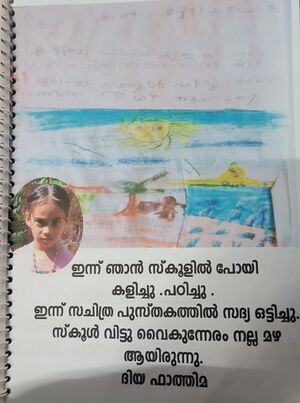 ഇന്ന് ഞാൻ സ്കൂളിൽ പോയി
കളിച്ചു .പഠിച്ചു .
ഇന്ന് സചിത്ര പുസ്തകത്തിൽ സദ്യ ഒട്ടിച്ചു.
സ്കൂൾ വിട്ടു വൈകുന്നേരം നല്ല മഴ
ആയിരുന്നു.
ദിയ ഫാത്തിമ